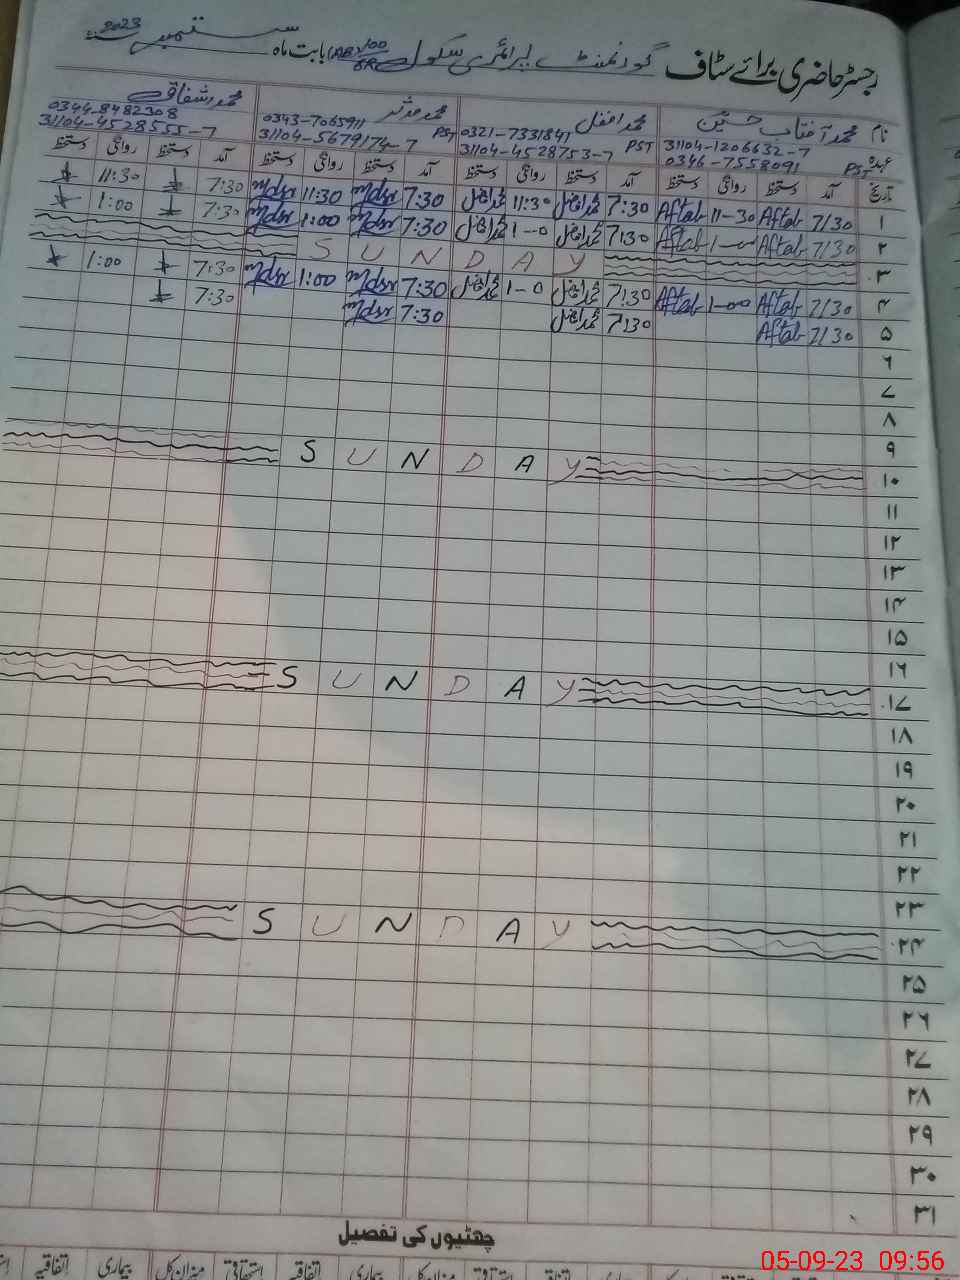 رجسٹر حاضری برائے سٹاف گورنمنٹ پرائمری سکول 100/8R (AB) بابت ماہ ستمبر 2023
نام محمد آفتاب حسین محمد افضل محمد مدثر محمد اشفاق
31104-1206632-7 0321-7331841 0343-7065911 0344-8482308
عہدہ PST 0346-7558091 PST 31104-4528753-7 PST 31104-5679174-7 31104-4528555-7
تاریخ آمد دستخط روانگی دستخط آمد دستخط روانگی دستخط آمد دستخط روانگی دستخط آمد دستخط روانگی دستخط
۱ 7/30 Aftab 11-30 Aftab 7:30 محمد افضل 11:30 محمد افضل 7:30 Mdsr 11:30 Mdsr 7:30 11:30
۲ 7/30 Aftab 1-00 Aftab 7:30 محمد افضل 1-0 محمد افضل 7:30 Mdsr 1:00 Mdsr 7:30 1:00
۳ SUNDAY
۴ 7/30 Aftab 1-00 Aftab 7:30 محمد افضل 1-0 محمد افضل 7:30 Mdsr 1:00 Mdsr 7:30 1:00
۵ 7/30 Aftab 7:30 محمد افضل 7:30 Mdsr 7:30
۶
۷
۸
۹
۱۰ SUNDAY
۱۱
۱۲
۱۳
۱۴
۱۵
۱۶
۱۷ SUNDAY
۱۸
۱۹
۲۰
۲۱
۲۲
۲۳
۲۴ SUNDAY
۲۵
۲۶
۲۷
۲۸
۲۹
۳۰
۳۱
چھٹیوں کی تفصیل
اتفاقیہ بیماری استحقاقی میزان کل اتفاقیہ بیماری میزان کل استحقاقی اتفاقیہ بیماری
05-09-23 09:56